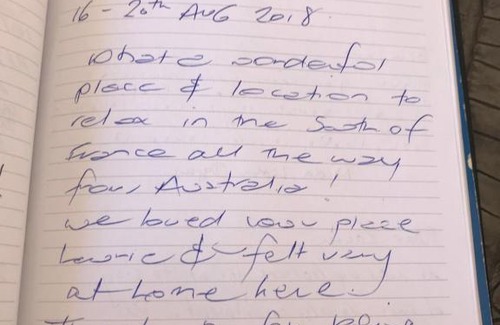 16 - 20th AUG 2018.
What a wonderful
place & location to
relax in the South of
France all the way
from Australia!
We loved your place
Lowrie & felt very
at home here.
for being